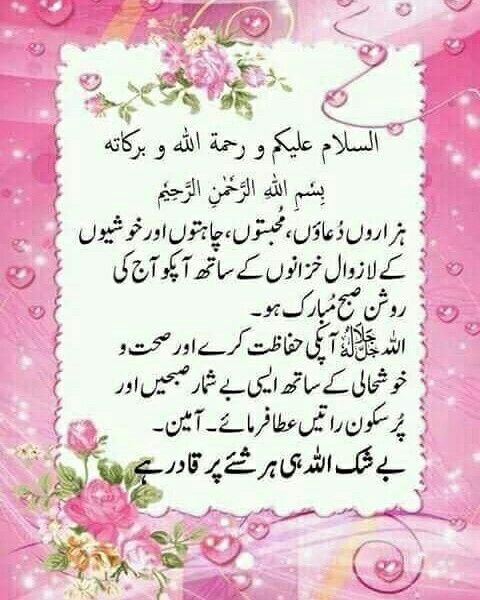 السلام علیکم و رحمة الله و برکاته
بِسْمِ اللهِ الرَّحْمٰنِ الرَّحِیْمِ
ہزاروں دُعاؤں، مُحبتوں، چاہتوں اور خوشیوں
کے لازوال خزانوں کے ساتھ آپکو آج کی
روشن صبح مُبارک ہو۔
اللہ جل جلالہ آپکی حفاظت کرے اور صحت و
خوشحالی کے ساتھ ایسی بے شمار صبحیں اور
پُر سکون راتیں عطا فرمائے۔ آمین۔
بے شک اللہ ہی ہر شئے پر قادر ہے